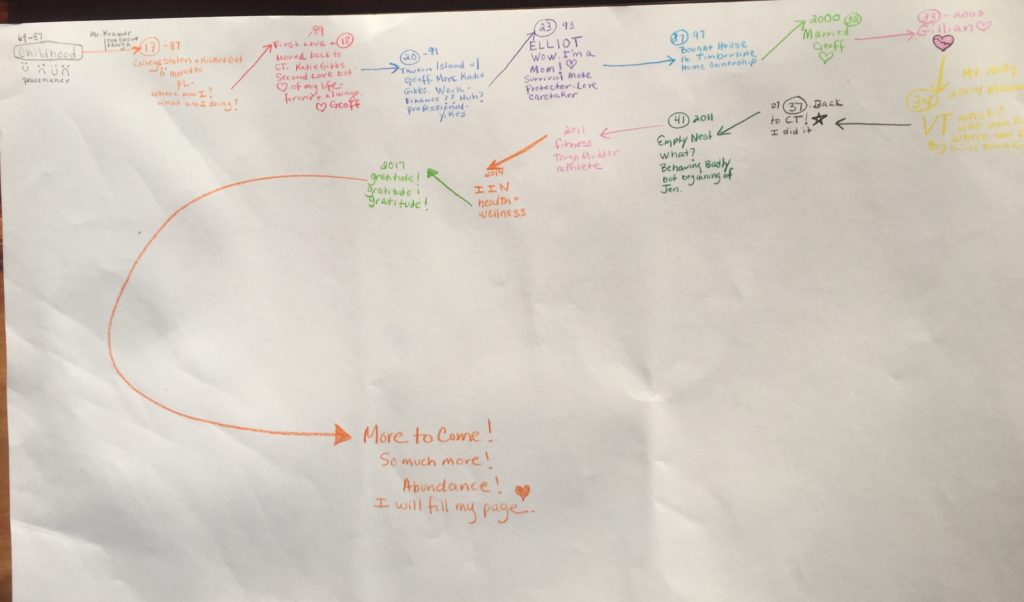 69-87
Childhood
peacemaker
Mr. Kramer
not smart
enough
17 - 87
College Sisters + Kicked Out
moved to
FL-
where am I?
what am I doing?
89
First Love + 18
moved back to
CT. Katie Gibbs
Second Love but
♡ of my life-
forever + always.
♡ Geoff
20 - 91
Tavern Island w/
Geoff. More Katie
Gibbs. Work-
Finance?? Huh?
professional-
yikes
23 93
ELLIOT
Wow. I'm a
Mom! ♡
Survival Mode
Protector-Love
caretaker
27 97
Bought House
in Timberline
Home Ownership
2000 30
Married
Geoff
♡
33 - 2003
Gillian ♡
34
2004
VT what?
who am
where am
Big
07 37. Back
to CT! ★
I did it
41 2011
Empty Nest
What?
Behaving Badly
but beginning of
Jen.
2011
fitness
Tough Mudder
athlete
2014
IIN
health +
wellness
2017
gratitude!
gratitude!
gratitude!
More to Come!
So much more!
Abundance!
I will fill my page.